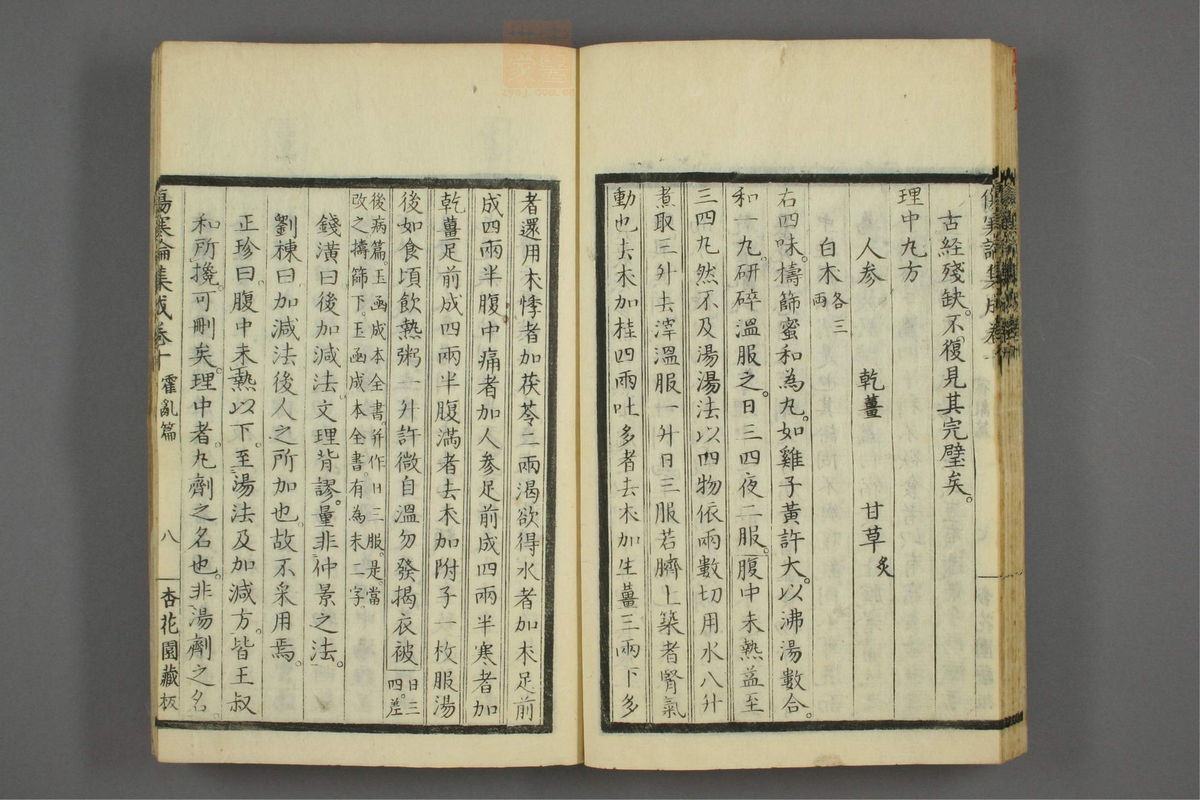 古経殘缺。不復見其完璧矣。
理中丸方
人参 乾薑 甘草炙
白朮各三兩
右四味。擣篩蜜和為丸。如雞子黃許大。以沸湯數合。
和一丸。研碎溫服之。日三四夜二服。腹中未熱益至
三四丸然不及湯湯法以四物依兩數切用水八升
煮取三升去滓溫服一升日三服若臍上築者腎氣
動也去朮加桂四兩吐多者去朮加生薑三兩下多
者還用朮悸者加茯苓二兩渴欲得水者加朮足前
成四兩半腹中痛者加人参足前成四兩半寒者加
乾薑足前成四兩半腹滿者去朮加附子一枚服湯
後如食頃飲熱粥一升許微自溫勿發揭衣被日三四。差
後病篇。玉函成本全書。并作日三服。是。當
改之擣篩下。玉函成本全書有為末二字。
錢潢曰後加減法。文理背謬。量非仲景之法。
劉棟曰加減法後人之所加也。故不采用焉。
正珍曰。腹中未熱以下。至湯法及加減方。皆王叔
和所攙。可刪矣。理中者。丸劑之名也。非湯劑之名。
傷寒論集成卷十 霍亂篇 八 杏花園藏板